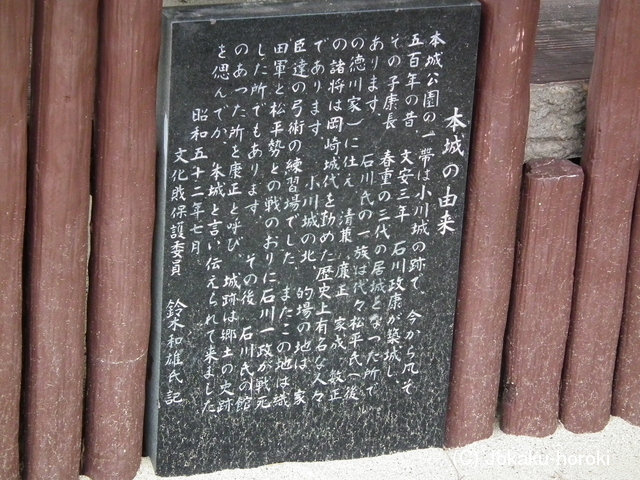 本城の由来
本城公園の一帯は小川城の跡で、今から凡そ
五百年の昔、文安三年 石川政康が築城し、
その子康長 春重の三代の居城となった所で
あります。 石川氏の一族は代々松平氏（後
の徳川家）に仕え 清兼 康正 家成 数正
の諸将は岡崎城代を勤めた歴史上有名な人々
であります。 小川城の北 的場の地は 家
臣達の弓術の練習場でした。またこの地は織
田軍と松平勢との戦のおりに石川一政が戦死
した所でもあります。 その後 石川氏の館
のあった所を康正と呼び、城跡は郷土の史跡
を偲んでか、本城と言い伝えられて来ました
昭和五十二年七月
文化財保護委員 鈴木和雄氏記
(C) Jbkaku-horoki